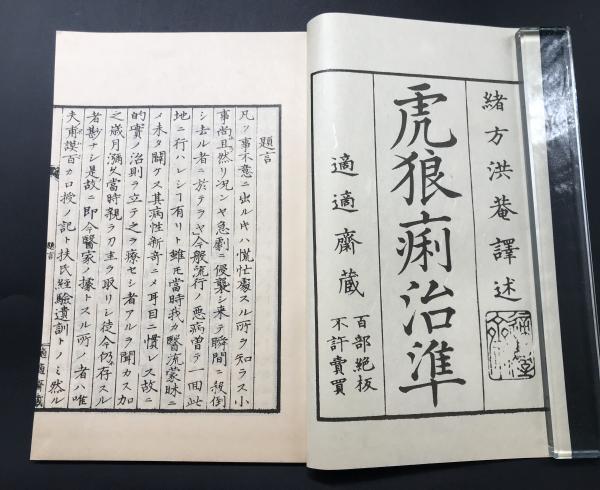 緒方洪菴譯述
虎狼痢治準
適適齋蔵
百部絶板
不許賣買
題言
凡ソ事不意ニ出ルキハ慌忙處スル所ヲ知ラス小
事尚且然リ況ンヤ急劇ニ侵襲シ来テ瞬間ニ殺倒
シ去ル者ニ於テヲヤ今般流行ノ悪病曽テ一回此
地ニ行ハレシ有リト雖モ當時我カ醫流蒙昧ニ
メ未タ開ケス其病性新奇ニメ耳目ニ慣レス故ニ
的實ノ治則ヲ立テ之ヲ療セシ者アルヲ聞カス加
之歳月漸久當時親ラ刀圭ヲ取リシ徒今仍存スル
者尠ナシ是故ニ即今醫家ノ據トスル所ノ者ハ唯
夫甫謨百カ口授ノ記ト扶氏經驗遺訓トノミ然ル
題言
適適齋蔵